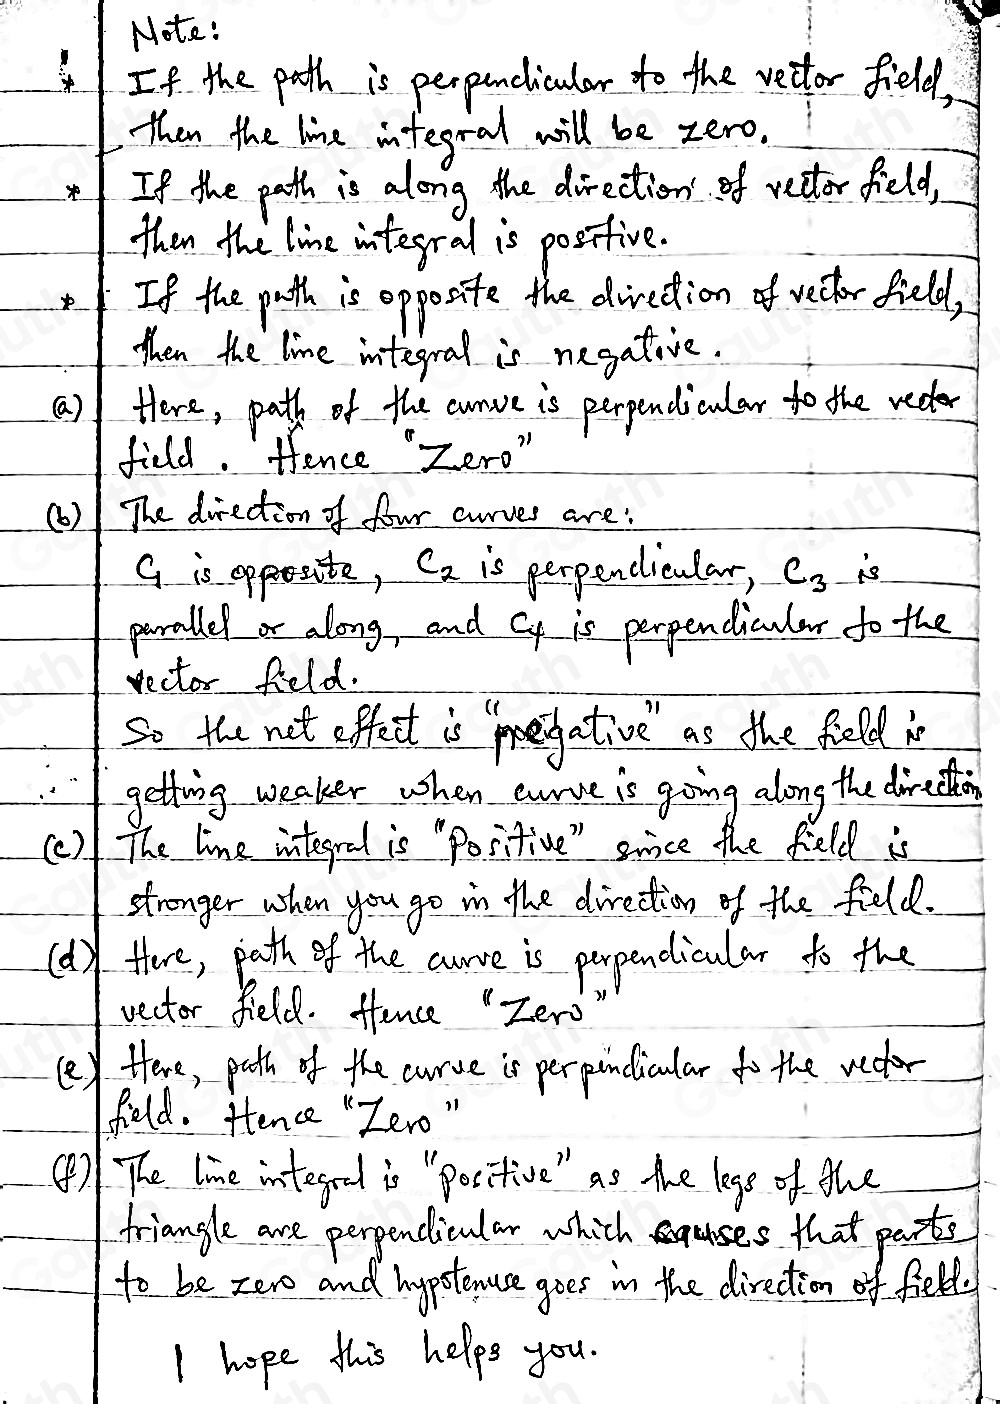 Note:
* If the path is perpendicular to the vector field,
then the line integral will be zero.
* If the path is along the direction of vector field,
then the line integral is positive.
* If the path is opposite the direction of vector field,
then the line integral is negative.
(a) Here, path of the curve is perpendicular to the vector
field. Hence "Zero"
(b) The direction of four curves are:
C1 is opposite, C2 is perpendicular, C3 is
parallel or along, and C4 is perpendicular to the
vector field.
So the net effect is "negative" as the field is
getting weaker when curve is going along the direction
(c) The line integral is "Positive" since the field is
stronger when you go in the direction of the field.
(d) Here, path of the curve is perpendicular to the
vector field. Hence "Zero"
(e) Here, path of the curve is perpendicular to the vector
field. Hence "Zero"
(f) The line integral is "positive" as the legs of the
triangle are perpendicular which causes that parts
to be zero and hypotenuse goes in the direction of field.
I hope this helps you.